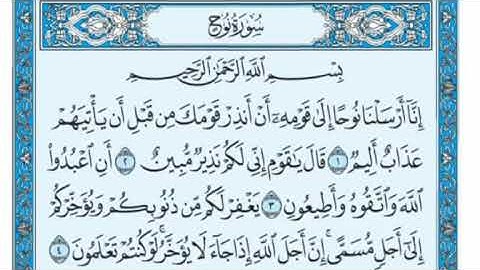 سُورَةُ نُوحٍ
بِسْمِ اللَّهِ الرَّحْمَٰنِ الرَّحِيمِ
إِنَّآ أَرْسَلْنَا نُوحًا إِلَىٰ قَوْمِهِۦٓ أَنْ أَنذِرْ قَوْمَكَ مِن قَبْلِ أَن يَأْتِيَهُمْ
عَذَابٌ أَلِيمٌ ١ قَالَ يَٰقَوْمِ إِنِّي لَكُمْ نَذِيرٌ مُّبِينٌ ٢ أَنِ ٱعْبُدُوا۟
ٱللَّهَ وَٱتَّقُوهُ وَأَطِيعُونِ ٣ يَغْفِرْ لَكُم مِّن ذُنُوبِكُمْ وَيُؤَخِّرْكُمْ
إِلَىٰٓ أَجَلٍ مُّسَمًّى ۚ إِنَّ أَجَلَ ٱللَّهِ إِذَا جَآءَ لَا يُؤَخَّرُ ۖ لَوْ كُنتُمْ تَعْلَمُونَ ٤